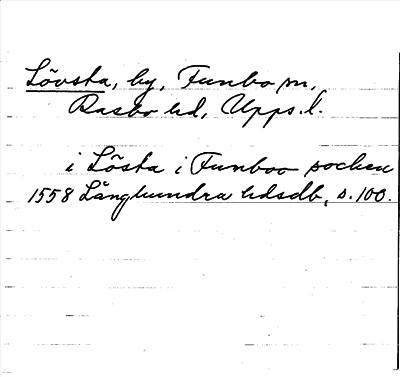 Lövsta, by, Funbo sn,
Rasbo hd, Upps. l.
i Lösta i Funboo sochen
1558 Långhundra hdsdb, s. 100.